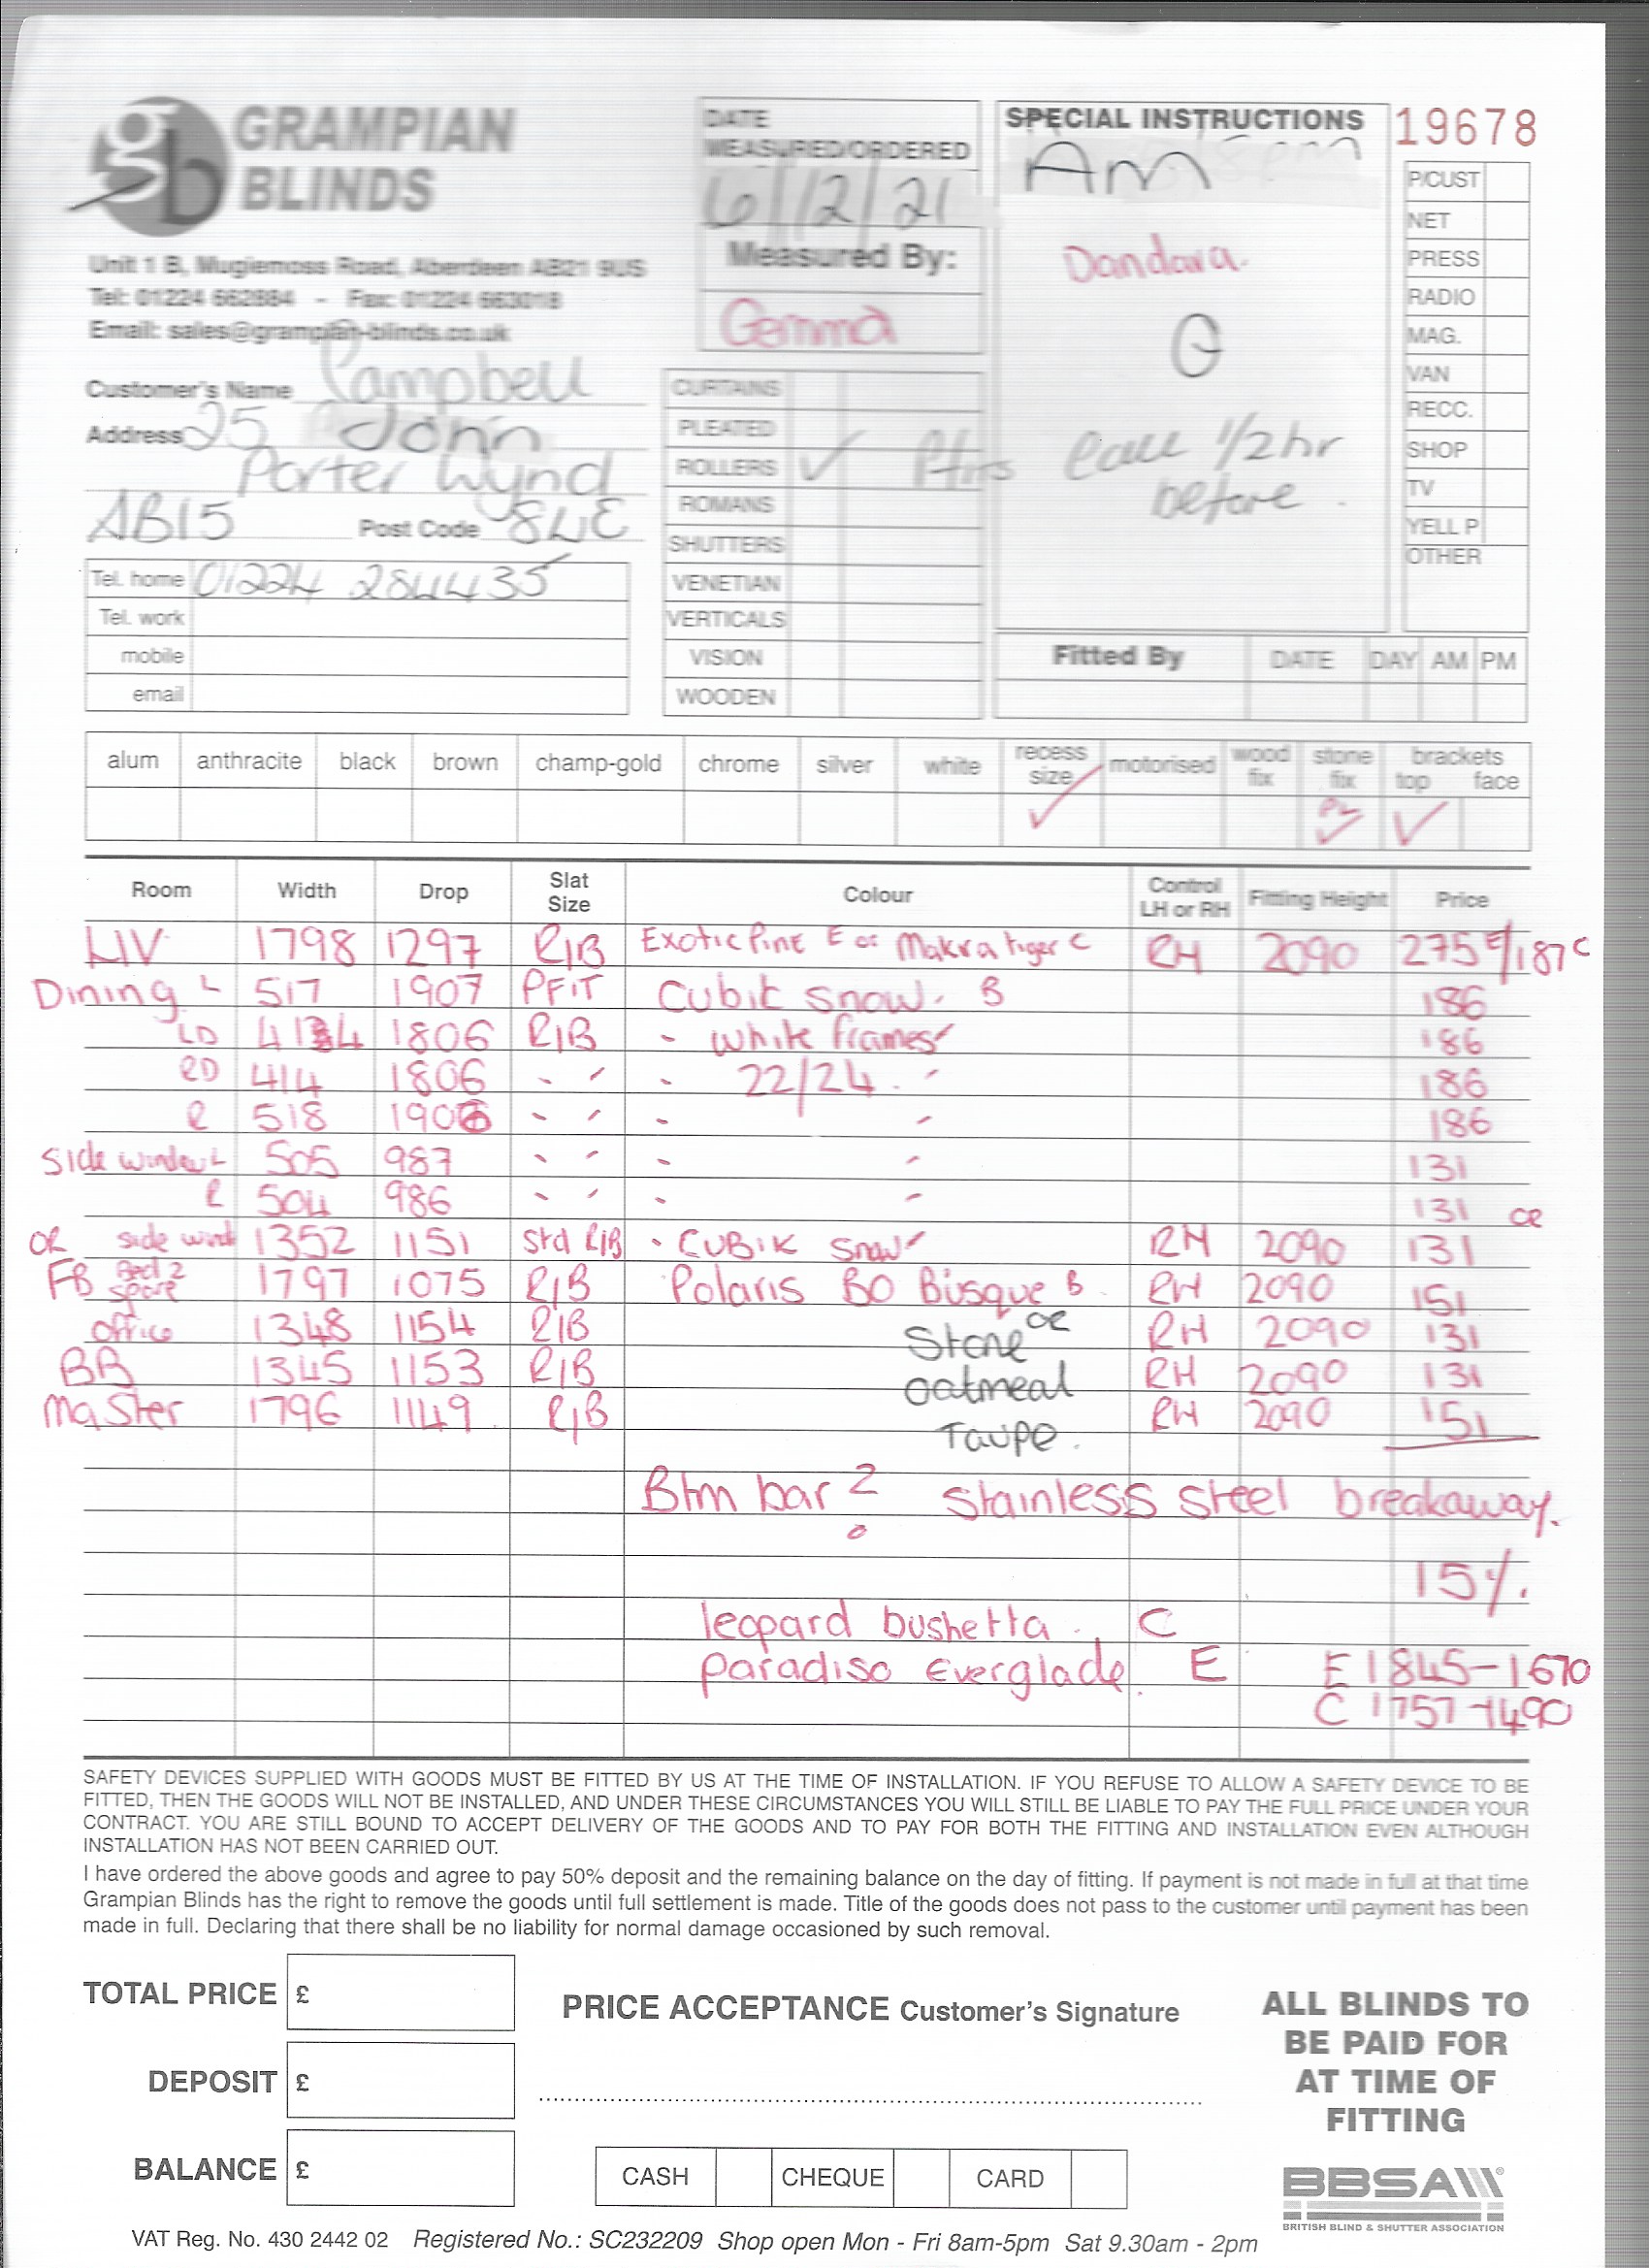 GRAMPIAN
BLINDS
Unit 1 B, Mugiemoss Road, Aberdeen AB21 9US
Tel: 01224 662884 - Fax: 01224 663018
Email: sales@grampian-blinds.co.uk
DATE
MEASURED/ORDERED
6/12/21
Measured By:
Gemma
SPECIAL INSTRUCTIONS
Am
Dandara.
call 1/2hr
before.
19678
P/CUST
NET
PRESS
RADIO
MAG.
VAN
RECC.
SHOP
TV
YELL P
OTHER
Customer's Name Campbell
Address 25 John
Porter Wynd
AB15 Post Code 8LE
Tel. home 01224 284435
Tel. work
mobile
email
CURTAINS
PLEATED
ROLLERS ✓
ROMANS
SHUTTERS
VENETIAN
VERTICALS
VISION
WOODEN
Fitted By DATE DAY AM PM
alum anthracite black brown champ-gold chrome silver white recess size motorised wood fix stone fix brackets top face
✓ PL ✓ ✓
Room Width Drop Slat Size Colour Control LH or RH Fitting Height Price
LIV 1798 1297 R/B Exotic Pine E or Makra tiger C RH 2090 275 E/187 C
Dining L 517 1907 PFIT Cubik snow. B 186
LD 414 1806 R/B - white frames 186
RD 414 1806 22/24 186
R 518 1906 186
Side window L 505 987 131
R 504 986 131 OR
OR side wind 1352 1151 Std R/B CUBIK snow RH 2090 131
FB Bed 2 spare 1797 1075 R/B Polaris BO Bisque B RH 2090 151
office 1348 1154 R/B Stone or RH 2090 131
BB 1345 1153 R/B oatmeal RH 2090 131
Master 1796 1149 R/B Taupe. RH 2090 151
Btm bar 2 stainless steel breakaway.
15%.
leopard bushetta. C
paradiso Everglade. E E 1845-1670
C 1757-1490
SAFETY DEVICES SUPPLIED WITH GOODS MUST BE FITTED BY US AT THE TIME OF INSTALLATION. IF YOU REFUSE TO ALLOW A SAFETY DEVICE TO BE
FITTED, THEN THE GOODS WILL NOT BE INSTALLED, AND UNDER THESE CIRCUMSTANCES YOU WILL STILL BE LIABLE TO PAY THE FULL PRICE UNDER YOUR
CONTRACT. YOU ARE STILL BOUND TO ACCEPT DELIVERY OF THE GOODS AND TO PAY FOR BOTH THE FITTING AND INSTALLATION EVEN ALTHOUGH
INSTALLATION HAS NOT BEEN CARRIED OUT.
I have ordered the above goods and agree to pay 50% deposit and the remaining balance on the day of fitting. If payment is not made in full at that time
Grampian Blinds has the right to remove the goods until full settlement is made. Title of the goods does not pass to the customer until payment has been
made in full. Declaring that there shall be no liability for normal damage occasioned by such removal.
TOTAL PRICE £
DEPOSIT £
BALANCE £
PRICE ACCEPTANCE Customer's Signature
CASH CHEQUE CARD
ALL BLINDS TO
BE PAID FOR
AT TIME OF
FITTING
BBSA
BRITISH BLIND & SHUTTER ASSOCIATION
VAT Reg. No. 430 2442 02 Registered No.: SC232209 Shop open Mon - Fri 8am-5pm Sat 9.30am - 2pm